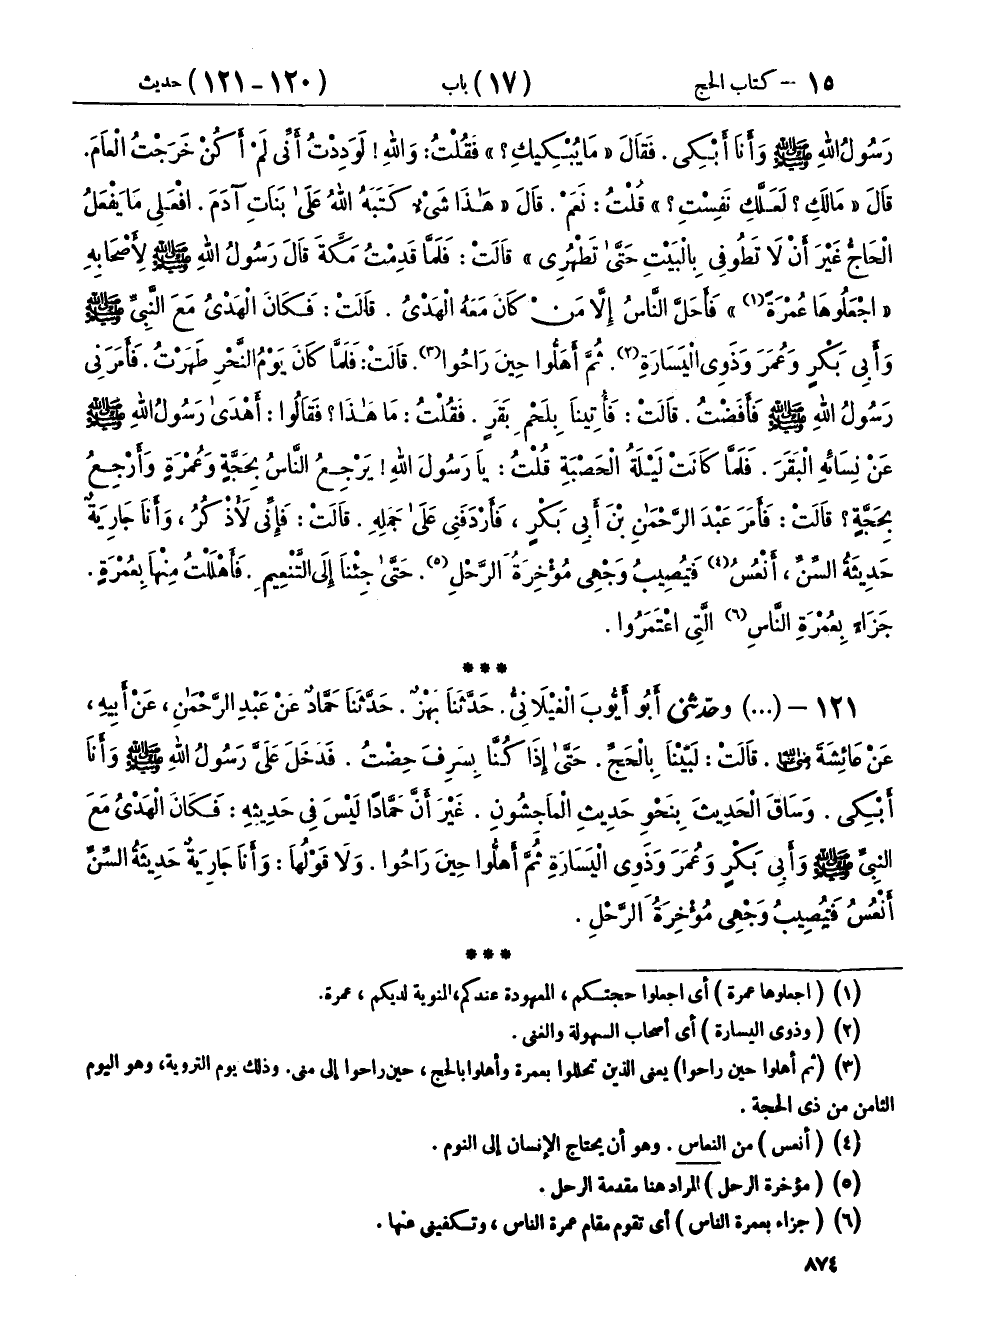 ١٥ – كتاب الحج (١٧) باب (١٢٠ – ١٢١) حديث
رَسُولُ اللهِ ﷺ وَأَنَا أَبْكِى . فَقَالَ « مَا يُبْكِيكِ ؟ » فَقُلْتُ : وَاللهِ ! لَوَدِدْتُ أَنِّى لَمْ أَكُنْ خَرَجْتُ الْعَامَ .
قَالَ « مَالَكِ ؟ لَعَلَّكِ نَفِسْتِ ؟ » قُلْتُ : نَعَمْ . قَالَ « هَٰذَا شَىْءٌ كَتَبَهُ اللهُ عَلَىٰ بَنَاتِ آدَمَ . افْعَلِى مَا يَفْعَلُ
الْحَاجُّ غَيْرَ أَنْ لَا تَطُوفِى بِالْبَيْتِ حَتَّىٰ تَطْهُرِى » قَالَتْ : فَلَمَّا قَدِمْتُ مَكَّةَ قَالَ رَسُولُ اللهِ ﷺ لِأَصْحَابِهِ
« اجْعَلُوهَا عُمْرَةً(١) » فَأَحَلَّ النَّاسُ إِلَّا مَنْ كَانَ مَعَهُ الْهَدْىُ . قَالَتْ : فَكَانَ الْهَدْىُ مَعَ النَّبِىِّ ﷺ
وَأَبِى بَكْرٍ وَعُمَرَ وَذَوِى الْيَسَارَةِ(٢) . ثُمَّ أَهَلُّوا حِينَ رَاحُوا(٣) . قَالَتْ : فَلَمَّا كَانَ يَوْمُ النَّحْرِ طَهَرْتُ . فَأَمَرَنِى
رَسُولُ اللهِ ﷺ فَأَفَضْتُ . قَالَتْ : فَأُتِينَا بِلَحْمِ بَقَرٍ . فَقُلْتُ : مَا هَٰذَا ؟ فَقَالُوا : أَهْدَىٰ رَسُولُ اللهِ ﷺ
عَنْ نِسَائِهِ الْبَقَرَ . فَلَمَّا كَانَتْ لَيْلَةُ الْحَصْبَةِ قُلْتُ : يَا رَسُولَ اللهِ ! يَرْجِعُ النَّاسُ بِحَجَّةٍ وَعُمْرَةٍ وَأَرْجِعُ
بِحَجَّةٍ ؟ قَالَتْ : فَأَمَرَ عَبْدَ الرَّحْمَٰنِ بْنَ أَبِى بَكْرٍ ، فَأَرْدَفَنِى عَلَىٰ جَمَلِهِ . قَالَتْ : فَإِنِّى لَأَذْكُرُ ، وَأَنَا جَارِيَةٌ
حَدِيثَةُ السِّنِّ ، أَنْعُسُ(٤) فَتُصِيبُ وَجْهِى مُؤْخِرَةُ الرَّحْلِ(٥) . حَتَّىٰ جِئْنَا إِلَى التَّنْعِيمِ . فَأَهْلَلْتُ مِنْهَا بِعُمْرَةٍ .
جَزَاءً بِعُمْرَةِ النَّاسِ(٦) الَّتِى اعْتَمَرُوا .
***
١٢١ – (...) وحدثنى أَبُو أَيُّوبَ الْغَيْلَانِىُّ . حَدَّثَنَا بَهْزٌ . حَدَّثَنَا حَمَّادٌ عَنْ عَبْدِ الرَّحْمَٰنِ ، عَنْ أَبِيهِ ،
عَنْ عَائِشَةَ رضي الله عنها . قَالَتْ : لَبَّيْنَا بِالْحَجِّ . حَتَّىٰ إِذَا كُنَّا بِسَرِفَ حِضْتُ . فَدَخَلَ عَلَىَّ رَسُولُ اللهِ ﷺ وَأَنَا
أَبْكِى . وَسَاقَ الْحَدِيثَ بِنَحْوِ حَدِيثِ الْمَاجِشُونِ . غَيْرَ أَنَّ حَمَّادًا لَيْسَ فِى حَدِيثِهِ : فَكَانَ الْهَدْىُ مَعَ
النَّبِىِّ ﷺ وَأَبِى بَكْرٍ وَعُمَرَ وَذَوِى الْيَسَارَةِ ثُمَّ أَهَلُّوا حِينَ رَاحُوا . وَلَا قَوْلُهَا : وَأَنَا جَارِيَةٌ حَدِيثَةُ السِّنِّ
أَنْعُسُ فَتُصِيبُ وَجْهِى مُؤْخِرَةُ الرَّحْلِ .
***
(١) ( اجعلوها عمرة ) أى اجعلوا حجتكم ، المعهودة عندكم ، المنوية لديكم ، عمرة .
(٢) ( وذوى اليسارة ) أى أصحاب السهولة والغنى .
(٣) ( ثم أهلوا حين راحوا ) يعنى الذين تحللوا بعمرة وأهلوا بالحج ، حين راحوا إلى منى . وذلك يوم التروية ، وهو اليوم
الثامن من ذى الحجة .
(٤) ( أنعس ) من النعاس . وهو أن يحتاج الإنسان إلى النوم .
(٥) ( مؤخرة الرحل ) المراد هنا مقدمة الرحل .
(٦) ( جزاء بعمرة الناس ) أى تقوم مقام عمرة الناس ، وتكفينى عنها .
٨٧٤